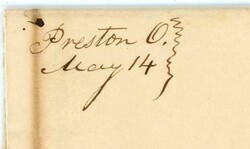 Preston O.
May 14